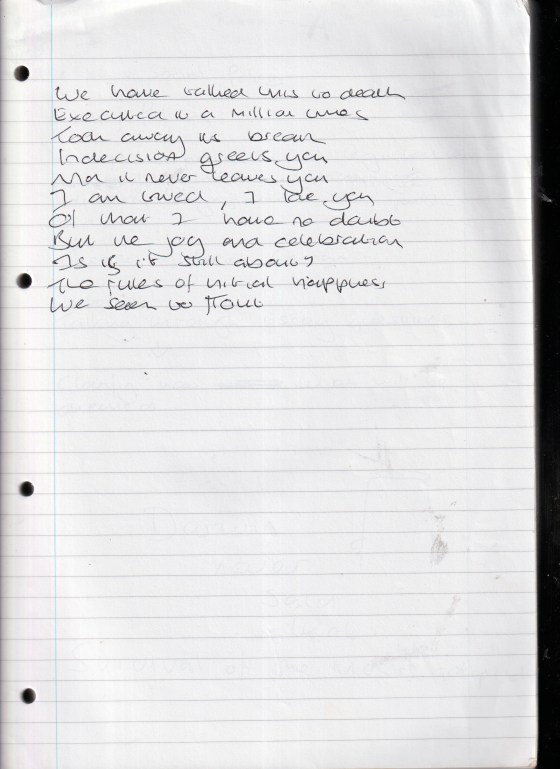 We have talked this to death
Executed it a million times
Took away its breath
Indecision greets you
And it never leaves you
I am loved, I love you
Of that I have no doubt
But the joy and celebration
Is it still about?
The rules of initial happiness
We seem to flout